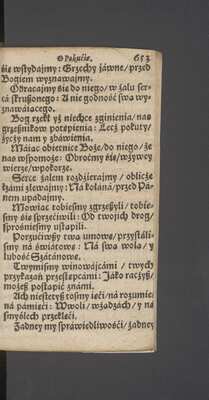 O Pokucie. 653
śie wstydajmy: Grzechy żáwne/przed
Bogiem wyznawajmy.
Obracajmy śie do niego/w żalu ser-
cá skruszonego: A nie godność swą wy-
znawáiącego.
Bog rzekł yż niechce zginienia/nas
grzesznikow potępienia: Lecż pokuty/
życży nam y zbáwienia.
Máiac obietnice Boże/do niego/że
nas wspomoże: Obroćmy śie/w żywey
wierze/w pokorze.
Serce żalem rozdzierajmy/oblicze
łzámi zlewajmy: Ná koláná/przed Pá-
nem upadajmy.
Mowiąc tobiesmy zgrzeszyli/tobie-
smy śie sprzećiwili: Od twojich drog/
sprosnieśmy ustąpili.
Porzućiwszy twą umowę/przystáli-
smy ná świátowe: Ná swą wolą/y
lubość Szátánowe.
Twymismy winowajcámi/twych
przykazań przestępcámi: Jáko racżysz/
możesz postąpić známi.
Ach niestetysz tosmy ieśći/ná rozumie:
ná pámięći: W woli/w żądzách/y ná
smyślech przeklęći.
Żadney my spráwiedliwośći/żadney